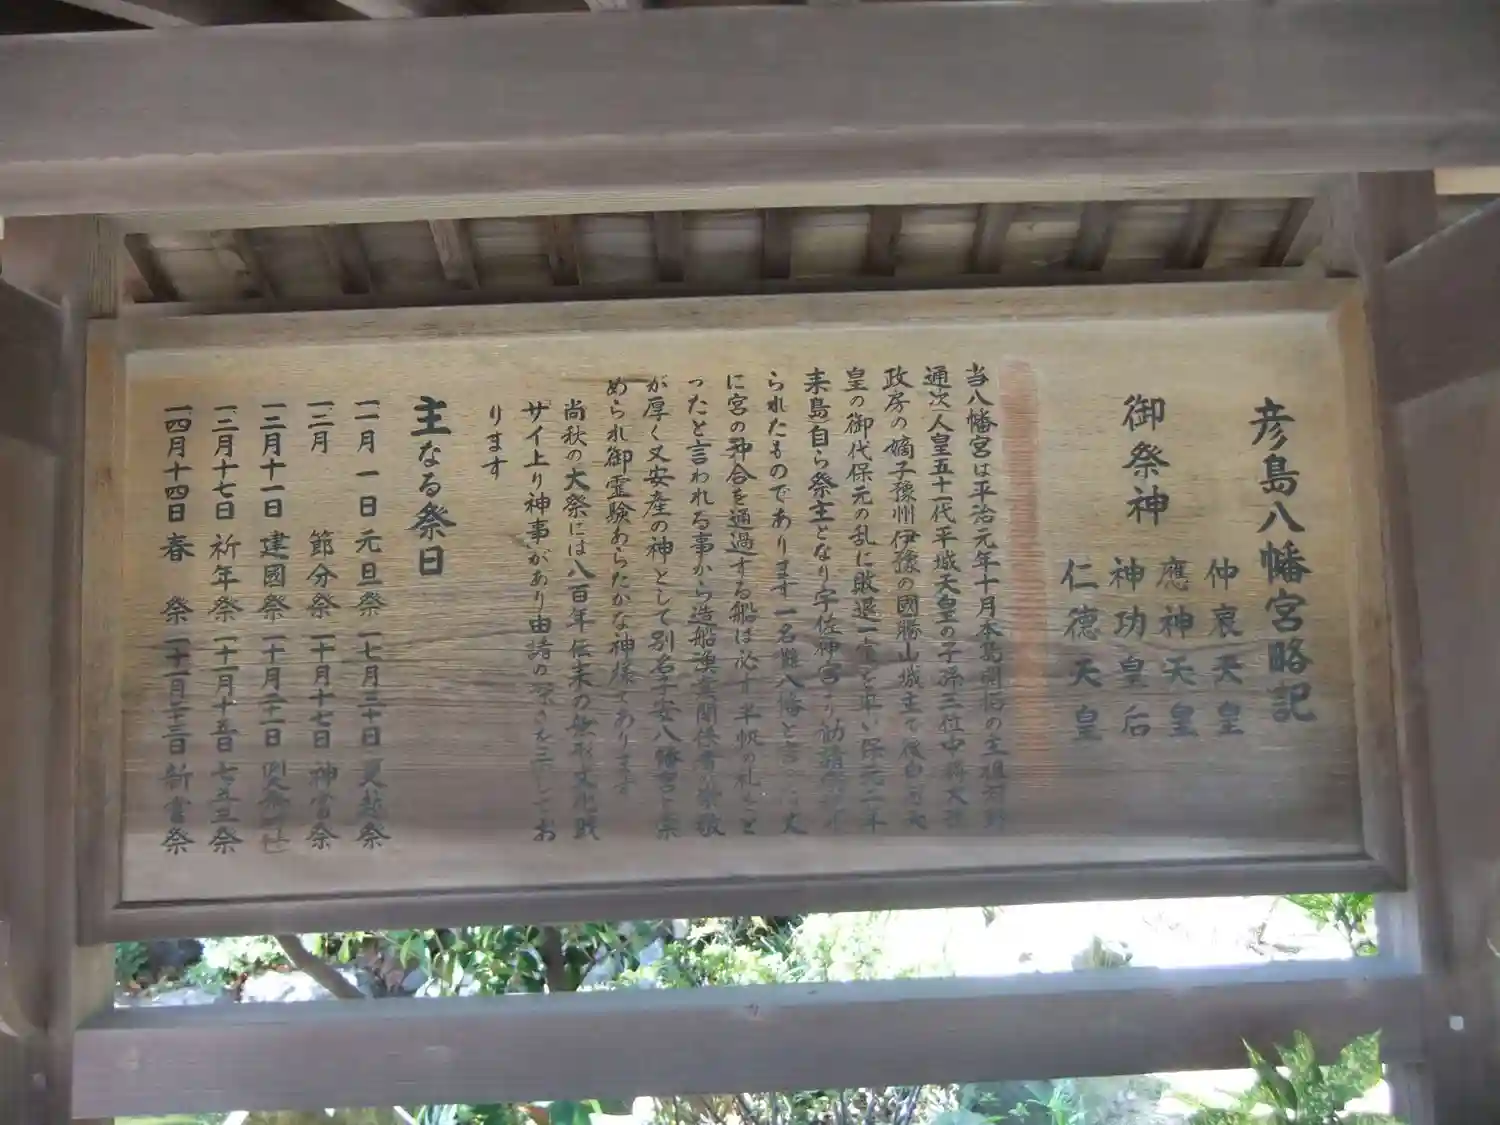 彦島八幡宮略記
御祭神
仲哀天皇
應神天皇
神功皇后
仁徳天皇
当八幡宮は平治元年十月本島開拓の主祖河野
通次人皇五十一代平城天皇の子孫三位中将大
政房の嫡子豫州伊豫の國勝山城主で後白河天
皇の御代保元の乱に敗退一宗を率い保元二年
来島自ら祭主となり宇佐神宮より勧請
られたものであります一名難八幡と言
に宮の沖合を通過する船は必ず半帆の礼をと
ったと言われる事から造船漁業関係者の崇敬
が厚く又安産の神として別名子安八幡宮と崇
められ御霊験あらたかな神様であります
尚秋の大祭には八百年伝来の無形文化戝
「サイ上り神事」があり由諸の深さを示してお
ります
主なる祭日
一一月 一日 元旦祭 一七月三十日 夏越祭
一二月 節分祭 一十月十七日 神宮祭
一二月十一日 建國祭 一十月二十一日
一二月十七日 祈年祭 一十一月十五日 七五三祭
一四月十四日 春 祭 一十一月二十三日 新嘗祭